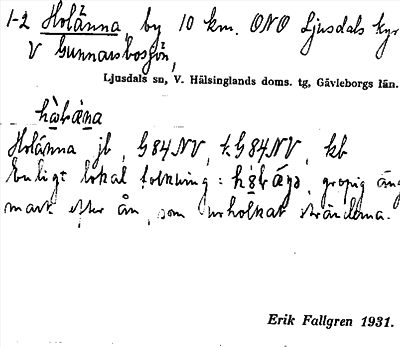 1-2 Holänna by 10 km. ONO Ljusdals kyr
V Gunnarsbosjön,
Ljusdals sn, V. Hälsinglands doms. tg, Gävleborgs län.
Holänna jb, G84NV, t. G84NV, kb
Enligt lokal tolkning: gropig äng
mark efter ån, som urholkat stränderna.
Erik Fallgren 1931.